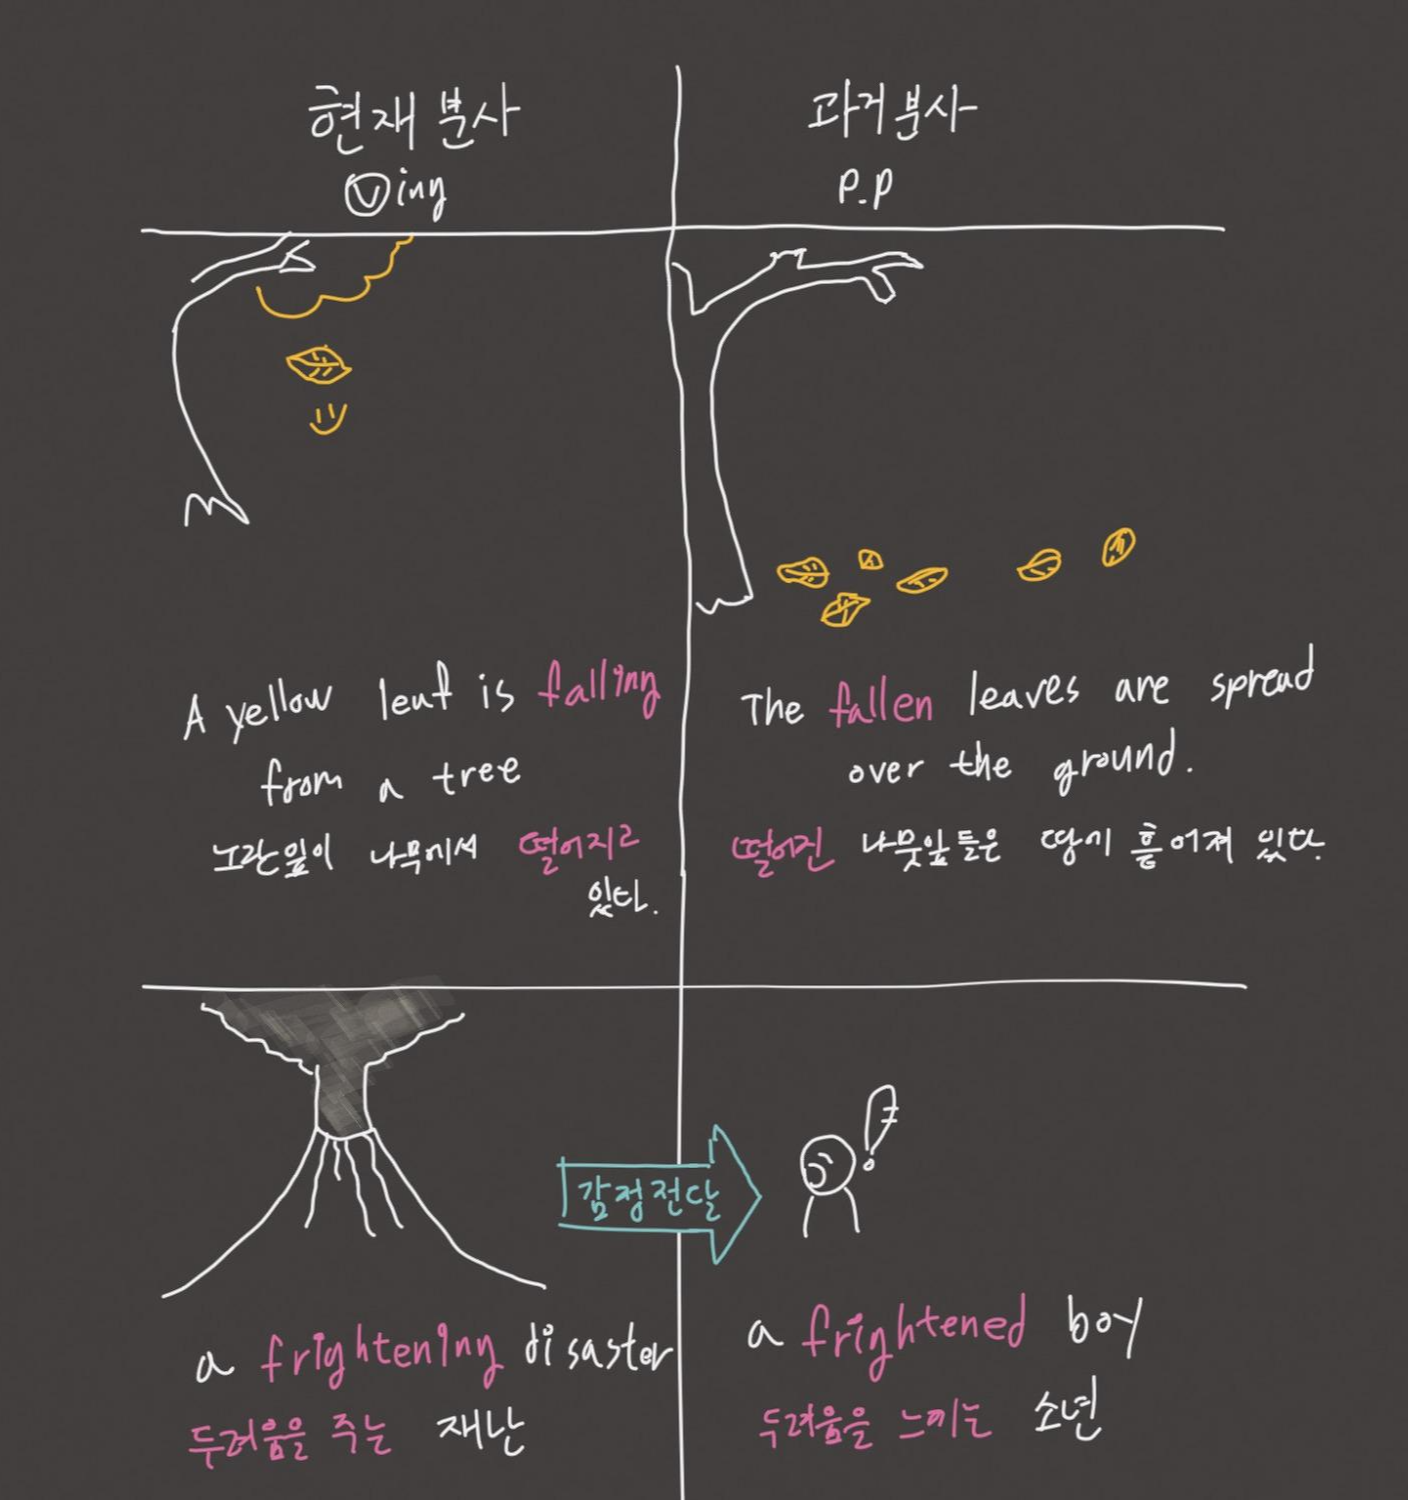 현재분사
Ving
과거분사
P.P
A yellow leaf is falling
from a tree
노란잎이 나무에서 떨어지고
있다.
The fallen leaves are spread
over the ground.
떨어진 나뭇잎들은 땅에 흩어져 있다.
감정전달
a frightening disaster
두려움을 주는 재난
a frightened boy
두려움을 느끼는 소년